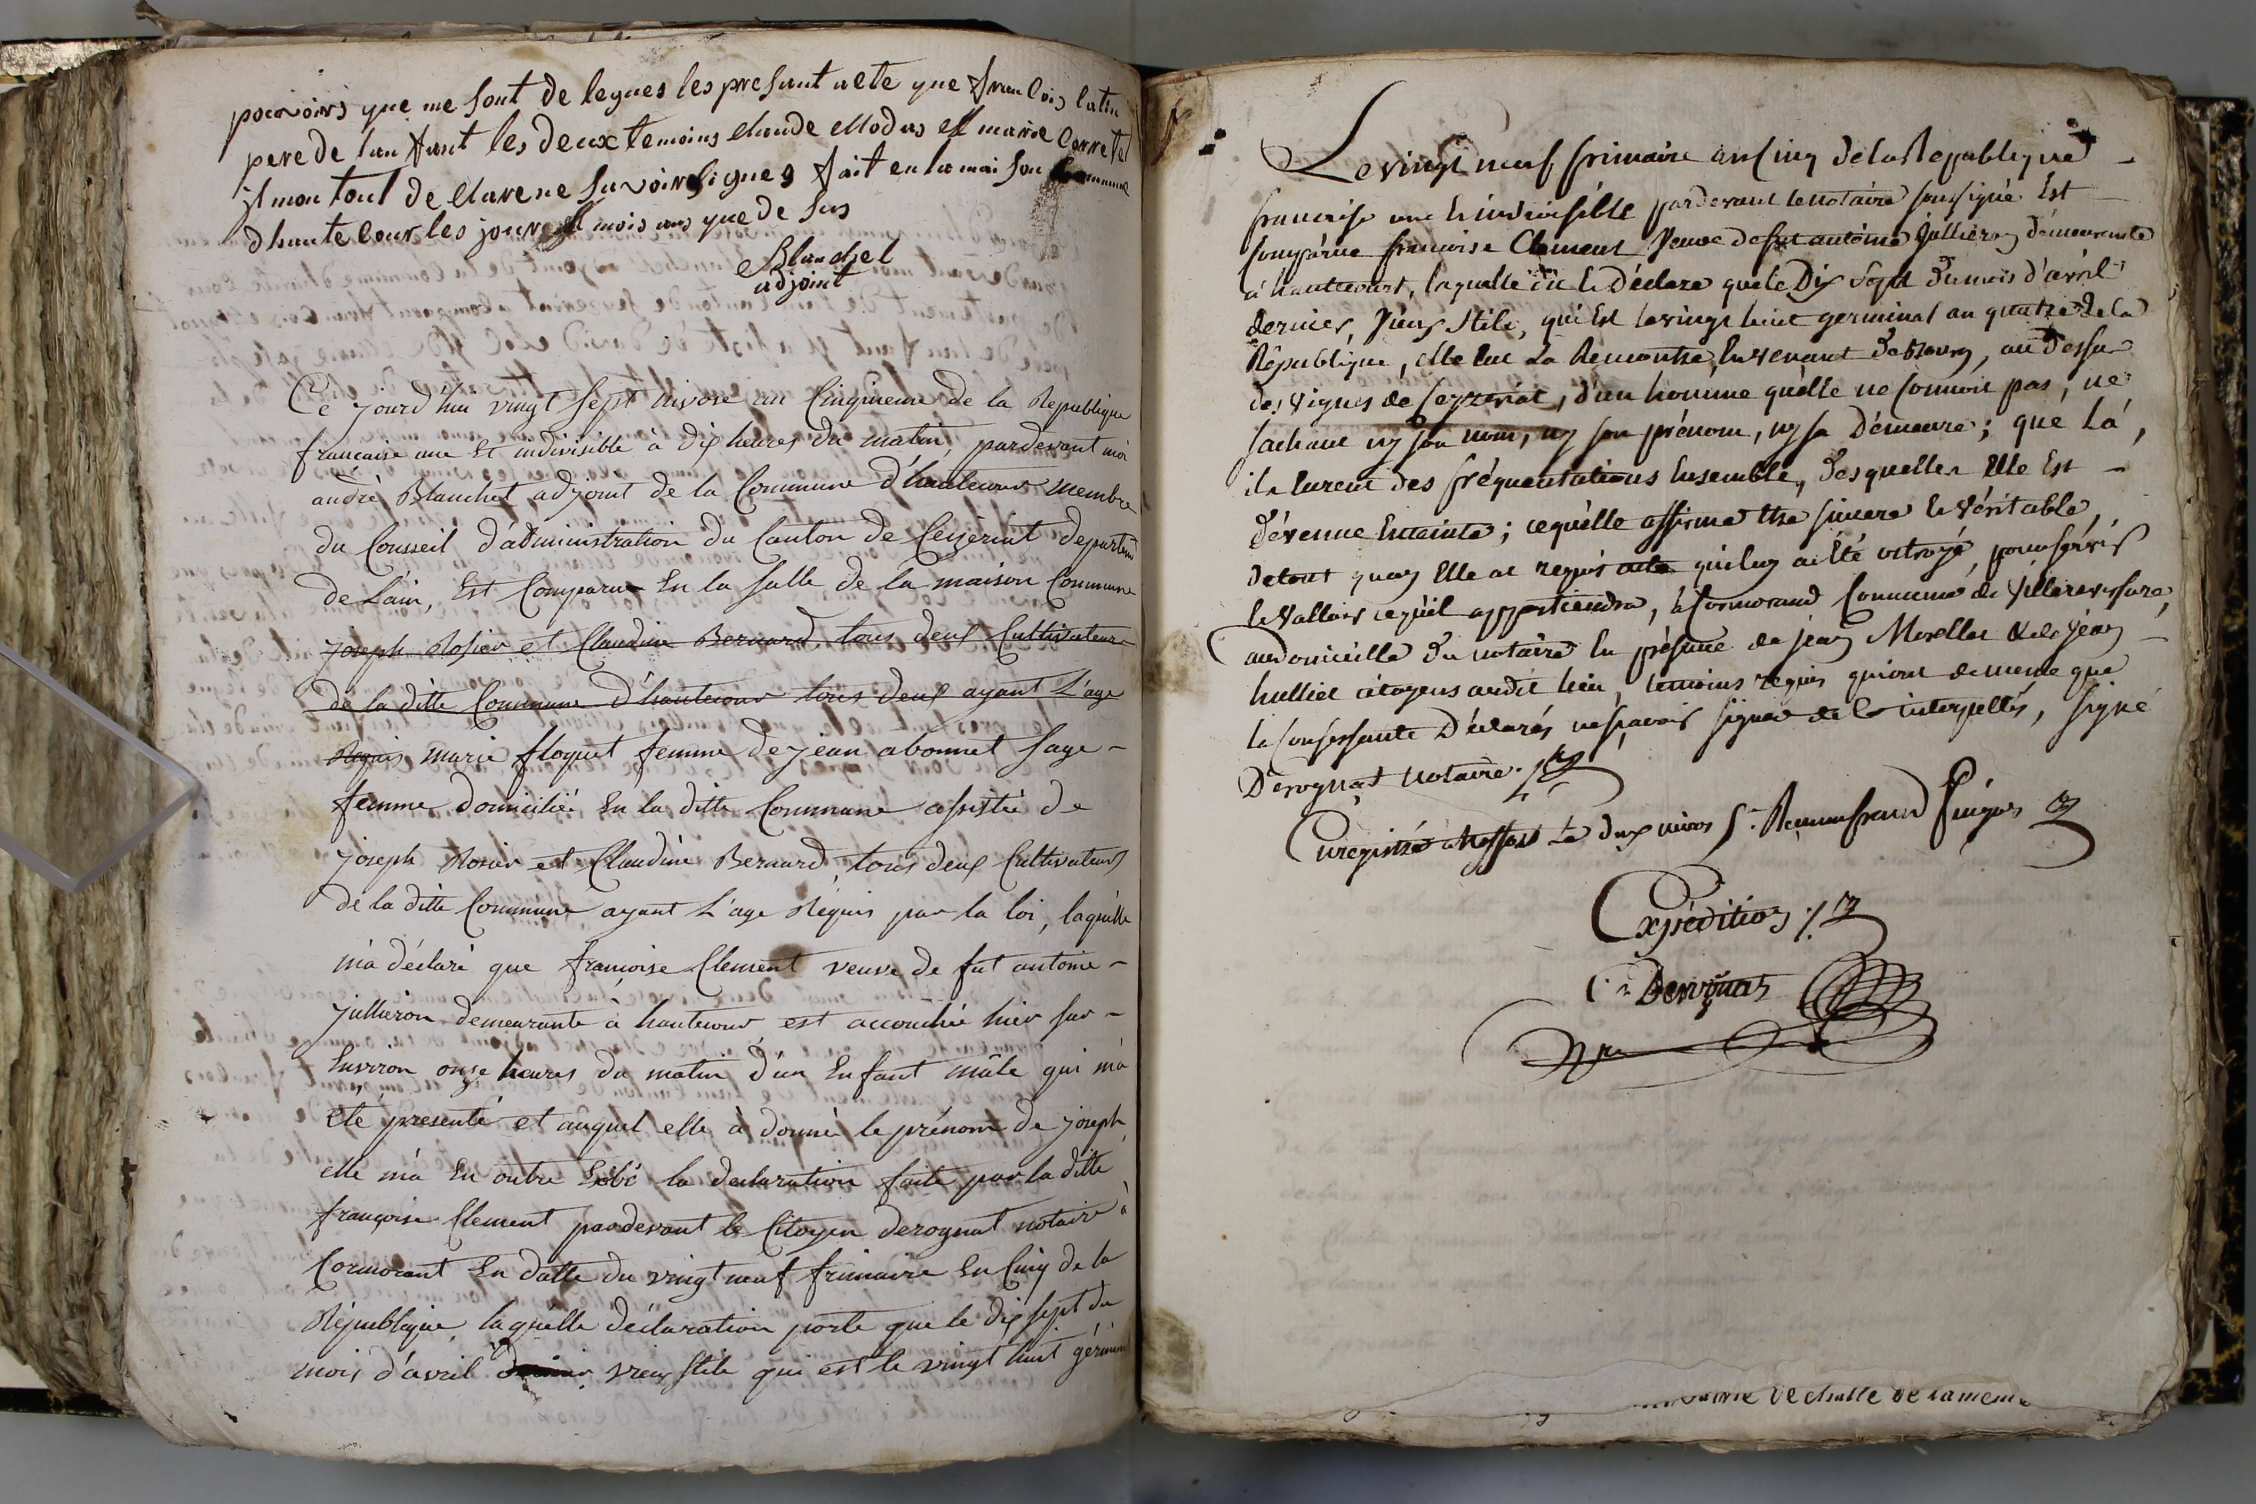 pouvoirs que me sont de legues les presant acte que francois
pere de lanfant les deux temoins claude et marie
il mon tout de clarene savoir signes fait en la mai son
dhautecour les jour et mois ans que de sus
Blanchet
adjoint
Ce jourd'hui vingt sept nivose an Cinquieme de la Republique
francaise une et indivisible à dix heures du matin, pardevant moi
andré Blanchet adjoint de la Commune d'hautecour membre
du Conseil d'administration du Canton de Ceizeriat departem
de Lain, Est Comparue En la salle de la maison Commune
joseph Rosier et Claudine Bernard tous deux Cultivateurs
de la ditte Commune d'hautecour tous deux ayant L'age
Requis marie floquet femme de jean abonnet sage -
femme domicilié En la ditte Commune assistée de
joseph Rosier et Claudine Bernard, tous deux Cultivateurs
de la ditte Commune ayant L'age Réquis par la loi, laquelle
m'a déclaré que françoise Clement veuve de fut antoine -
jullieron demeurante à hautecour est accouchée hier sur -
Environ onze heures du matin d'un Enfant mâle qui m'a
Eté presenté et auquel elle à donné le prénom de joseph
elle m'a En outre Exibé la declaration faite par la ditte
françoise Clement pardevant le Citoyen derognat notaire à
Cormorant En datte du vingt neuf frimaire En Cinq de la
République laquelle déclaration porte que le dix sept du
mois d'avril dernier vieux stile qui est le vingt huit germinal
Le vingt neuf frimaire an Cinq de la Republique -
francaise une Et indivisible pardevant le notaire soussigné Est -
Comparue francoise Clement Veuve de fut antoine Jullieron demeurante
à hautecourt, laquelle a dit Et Déclare que le Dix sept Du mois d'avril
dernier, Vieux Stile, qui Est le vingt huit germinal an quatre de la
République, elle eut La Rencontre, En venant De Bourg, au Dessus
des Vignes de Ceyzeriat, d'un homme qu'elle ne Connoit pas, ne
sachant ny son nom, ny son prénom, ny sa Démeure; que Là,
ils Eurent des fréquentations Ensemble, Desquelles Elle Est -
Dévenue Enceinte; ce qu'elle affirme Etre sincere Et Véritable,
de tout quoy Elle a requis acte qui luy a été octroyé, pour servir
Et Valloir ce qu'il appartiendra, à Cormorand Commune de Villereversure,
au domicille Du notaire En présence de jean Morellet & de jean -
hulliet citoyens audit lieu, temoins requis qui ont de meme que
la Confessante Déclarés ne sçavoir signer de Ce interpellés, signé
Derognat Notaire.
Enregistré Le deux nivos
Expédition
Derognat
Nre